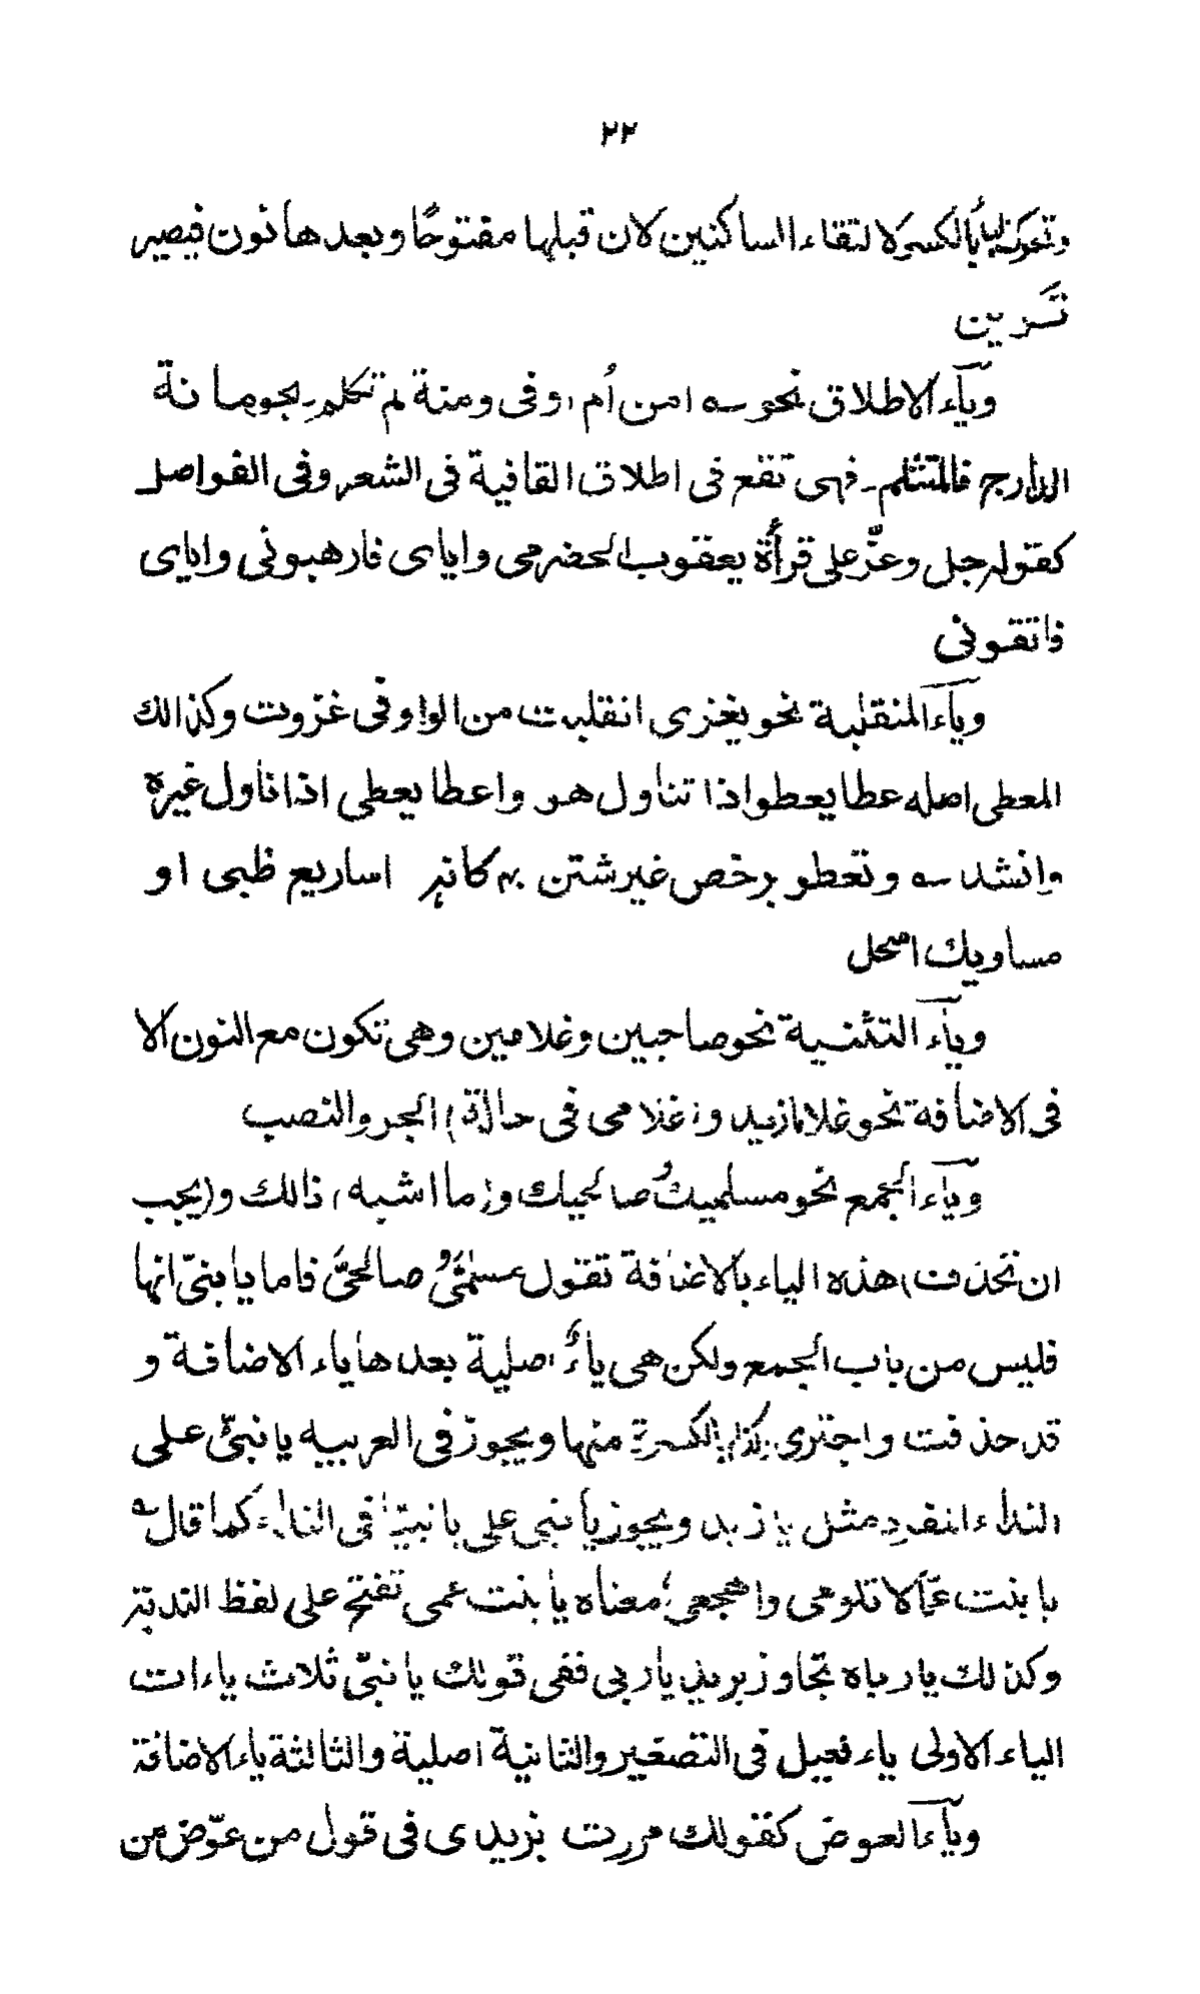 ٢٢
وتحرك الياء بالكسرة لالتقاء الساكنين لان قبلها مفتوحًا وبعدها نون فيصير
تَرين
وياء الاطلاق نحو سه امن أم اوفى ومنة لم تكلمـ بجومانة
الدارج فالمتثلمـ فهى تقع فى اطلاق القافية فى الشعر وفى الفواصل
كقوله جل وعزّ على قرأة يعقوب الحضرمى واياى فارهبونى واياى
فاتقونى
وياء المنقلبة نحو يغزى انقلبت من الواو فى غزوت وكذالك
المعطى اصله عطا يعطو اذا تناول هو واعطا يعطى اذا ناول غيره
وانشد سه وتعطو برخص غير شتن به كانه اساريع ظبى او
مساويك اسحل
وياء التثنية نحو صاحبين وغلامين وهى تكون مع النون الا
فى الاضافة نحو غلاما زيد و(غلامى فى حالة) الجر والنصب
وياء الجمع نحو مسلميك صالحيك و(ما اشبه) ذالك و(يجب
ان تحذف) هذه الياء بالاضافة تقول مسلمىّ صالحىَّ فاما يا بنىّ انها
فليس من باب الجمع ولكن هى ياءٌ اصلية بعدها ياء الاضافة و
قد حذفت واجتزى بالكسرة منها ويجوز فى العربيه يا نبىّ على
النداء المنفرد مثل يا زيد ويجوز يا نبى على يا نبيّا فى النداء كما قال سه
يا بنت عمّا لا تلومى واهجعى؛ معناه يا بنت عمى تفتح على لفظ الندبة
وكذلك يا رباه تجاوز يريد يا ربى ففى قولك يا نبىّ ثلاث ياءات
الياء الاولى ياء فعيل فى التصغير والثانية اصلية والثالثة ياء الاضافة
وياء العوض كقولك مررت بزيدى فى قول من عوّض من